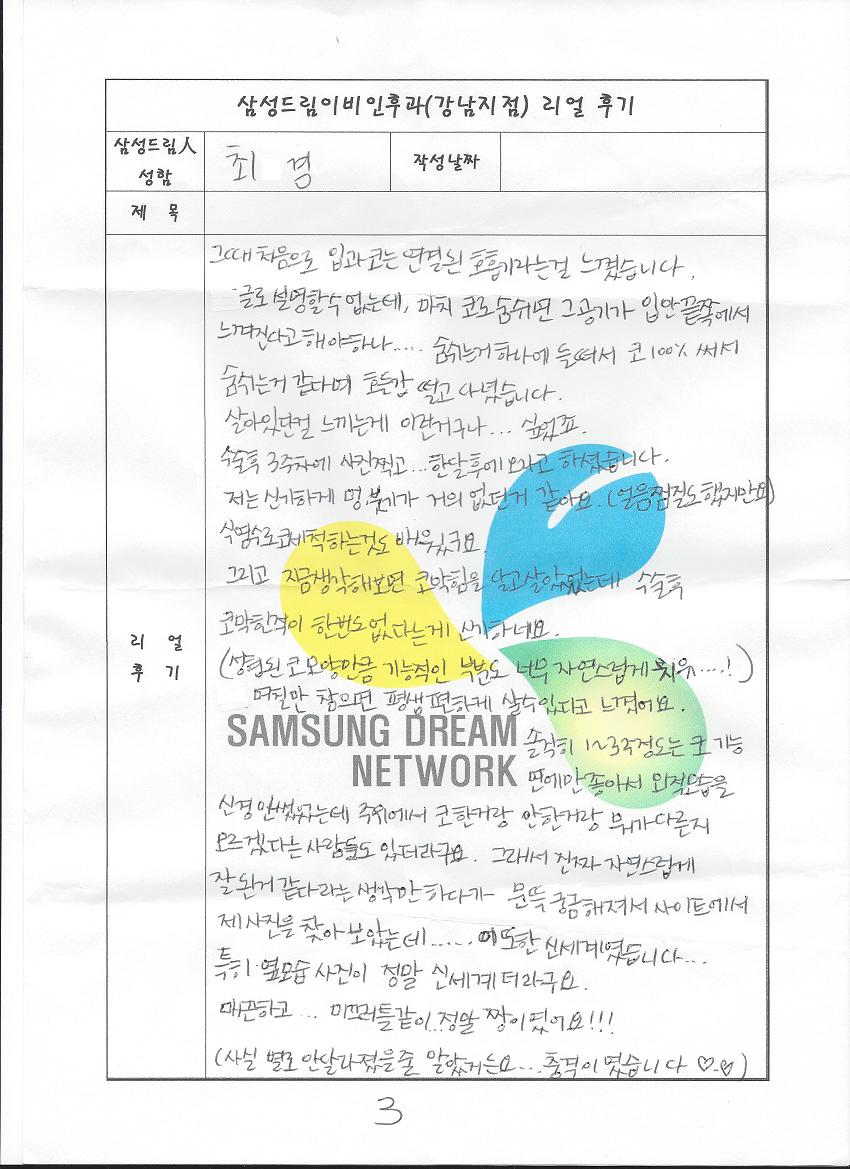 삼성드림이비인후과(강남지점) 리얼 후기
삼성드림人 성함
최 경
작성날짜
제 목
리 얼 후 기
그때 처음으로 입과 코는 연결된 호흡기라는걸 느꼈습니다.
글로 설명할수 없는데, 마치 코로 숨쉬면 그공기가 입안 끝쪽에서
느껴진다고 해야하나..... 숨쉬는거 하나에 들떠서 코 100% 써서
숨쉬는거 같다며 호들갑 떨고 다녔습니다.
살아있단걸 느끼는게 이런거구나... 싶었죠.
수술후 3주차에 사진찍고...한달후에 오라고 하셨습니다.
저는 신기하게 멍,붓기가 거의 없던거 같아요. (얼음찜질도 했지만요)
식염수로 코세척하는것도 배우있구요.
그리고 지금생각해보면 코막힘을 달고살았었는데 수술후
코막힌적이 한번도 없다는게 신기하네요.
(성형된 코모양만큼 기능적인 부분도 너무 자연스럽게 치유....!)
며칠만 참으면 평생 편하게 살수있다고 느꼈어요.
SAMSUNG DREAM
NETWORK
솔직히 1~3주정도는 코 기능
면에만 좋아서 외적모습을
신경 안썼었는데 주위에서 코한거랑 안한거랑 뭐가 다른지
모르겠다는 사람들도 있더라구요. 그래서 진짜 자연스럽게
잘 된거 같다라는 생각만 하다가 문뜩 궁금해져서 사이트에서
제 사진을 찾아 보았는데...... 이또한 신세계였습니다...
특히 옆모습 사진이 정말 신세계더라구요.
매끈하고... 미끄러틀같이 정말 짱이였어요!!!
(사실 별로 안달라졌을줄 알았거든요...충격이였습니다 ♡.♡)
3